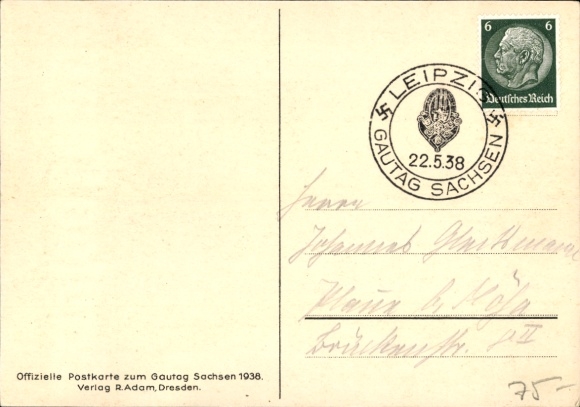 6 6
Deutsches Reich
LEIPZIG
22.5.38
GAUTAG SACHSEN
Herrn
Johannes
Plaue b/
Brückenstr.
Offizielle Postkarte zum Gautag Sachsen 1938.
Verlag R. Adam, Dresden.
75.-